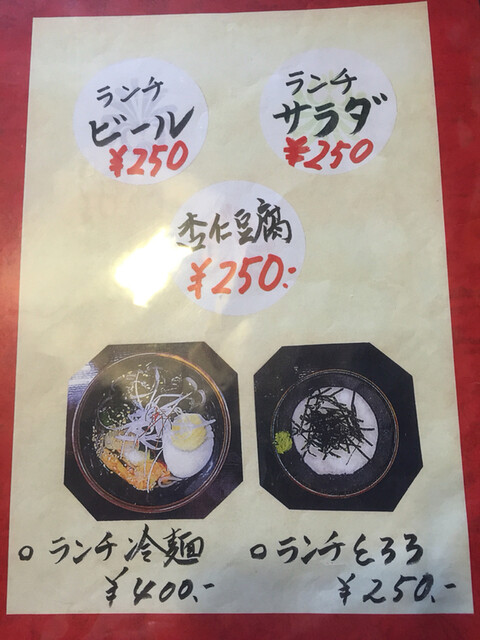 ランチ
ビール
¥250
ランチ
サラダ
¥250
杏仁豆腐
¥250.-
○ ランチ冷麺
¥400.-
○ ランチとろろ
¥250.-